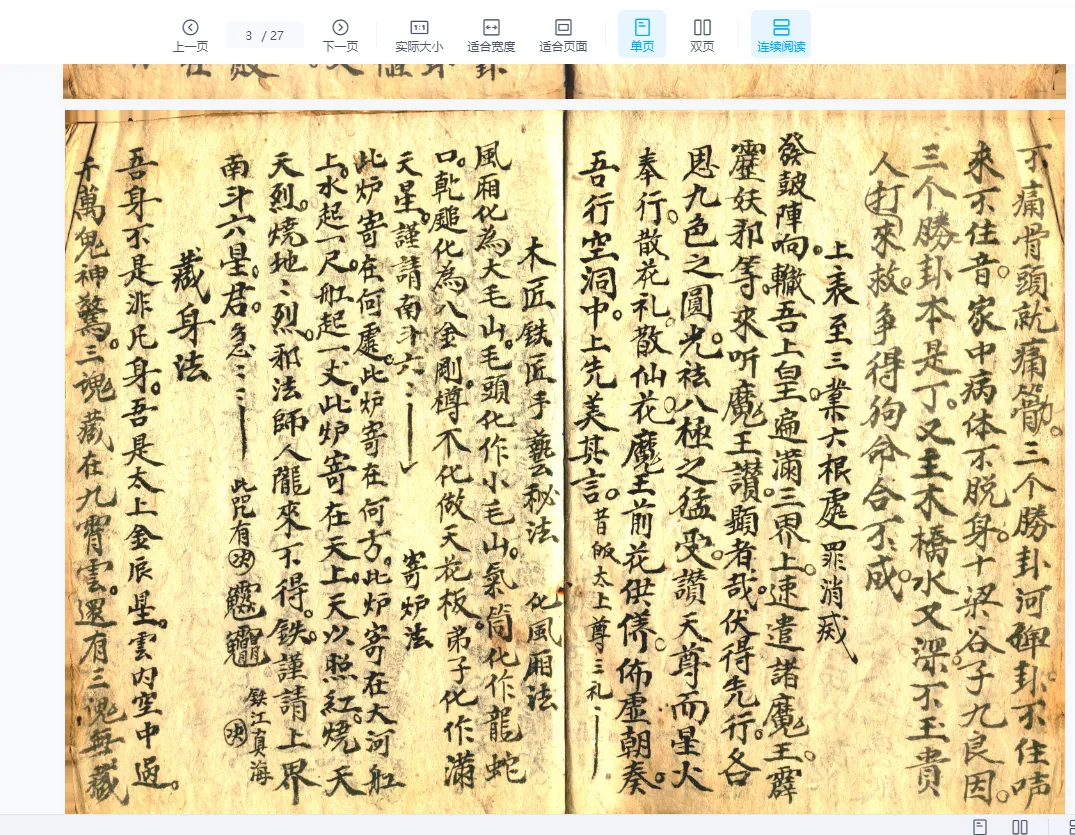 上一页
3 / 27
下一页
1:1
实际大小
适合宽度
适合页面
单页
双页
连续阅读
不痛骨頭就痛筋。三个勝卦河卦不住声
來不住音。家中病体不脱身。十梁谷子九良因。
三个勝卦本是丁。又主木橋水又深。不玉貴
人打來救。争得狗命合不成。
上表至三業六根處罪消滅
發皷陣响轍。吾上皇遍滿三界上。速遣諸魔王。霹
靈妖邪等。來听魔王讃。顯者哉。伏得先行。各
恩九色之圓光。祛八極之猛受。讃天尊而星火
奉行。散花礼。散仙花。魔王前花供養。佈虛朝奏。
吾行空洞中。上先美其言。昔皈太上尊三礼
木匠鉄匠手藝秘法 化風厢法
風厢化為大毛山。毛頭化作小毛山。氣筒化作龍蛇
口。乾魈化為八金剛。樽不化做天花板。弟子化作滿
天星。謹請南斗六 寄炉法
此炉寄在何處。此炉寄在何方。此炉寄在大河舡
上。水起一尺。舡起一丈。此炉寄在天上。天火照紅。燒天
天烈。燒地地烈。邪法師人隴來不得。鉄謹請上界
南斗六星君。急 此咒有 鉄江真海
藏身法
吾身不是非凡身。吾是太上金辰星。雲内空中過。
千萬鬼神驚。三魂藏在九霄雲。還有三魂無藏